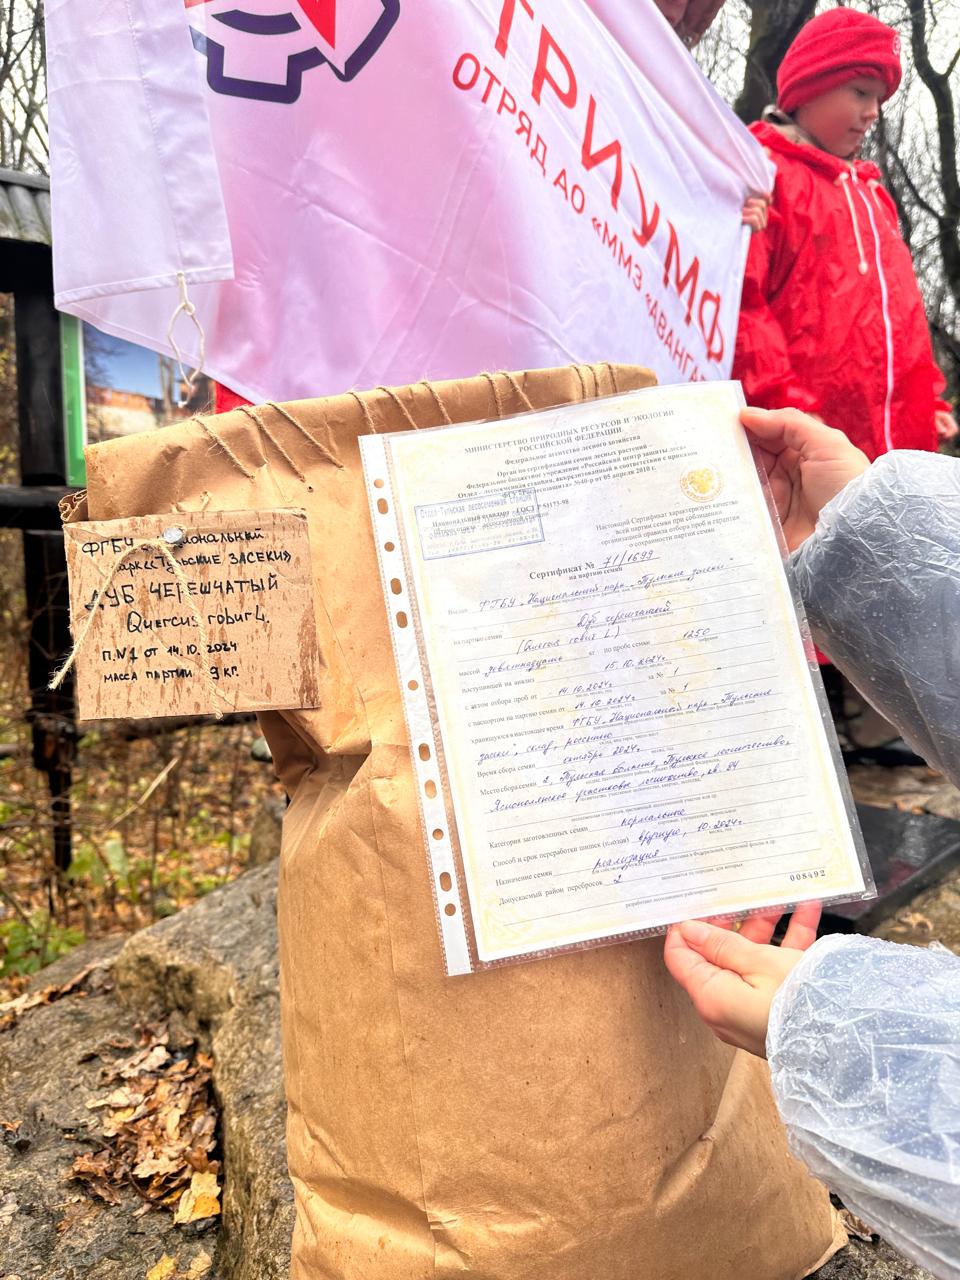 ТРИУМФ
ОТРЯД АО «ММЗ «АВАНГАР
ФГБУ «Национальный
парк «Тульские засеки»
ДУБ ЧЕРЕШЧАТЫЙ
Quercus robur L.
П.№1 от 14.10.2024
МАССА ПАРТИИ 9 кг.
МИНИСТЕРСТВО ПРИРОДНЫХ РЕСУРСОВ И ЭКОЛОГИИ
РОССИЙСКОЙ ФЕДЕРАЦИИ
Федеральное агентство лесного хозяйства
Орган по сертификации семян лесных растений –
Федеральное бюджетное учреждение «Российский центр защиты леса»
Отдел - лесосеменная станция, аккредитованный в соответствии с приказом
ФБУ "Рослесозащита" № 40-р от 05 апреля 2018 г.
Отдел "Тульская лесосеменная станция"
Национальный стандарт ГОСТ Р 51173-98
Настоящий Сертификат характеризует качество
всей партии семян при соблюдении
организацией правила отбора проб и гарантии
о сохранности партии семян
Сертификат № 71/1699
на партию семян
Выдан ФГБУ „Национальный парк „Тульские засеки"
на партию семян Дуб черешчатый
(Quercus robur L.)
массой кг по пробе семян 1250 г.
поступившей на анализ 15.10.2024г
с актом отбора проб от 14.10.2024г за № 1
с паспортом на партию семян от 14.10.2024г за № 1
хранящуюся в настоящее время ФГБУ „Национальный парк „Тульские
засеки", склад, россыпью
Время сбора семян октябрь 2024г
Место сбора семян 2, Тульская область, Тульское лесничество,
Яснополянское участковое лесничество, кв. 84
Категория заготовленных семян нормальные
Способ и срок переработки шишек (плодов) вручную, 10.2024г
Назначение семян реализация
Допускаемый район перебросок 2
008492